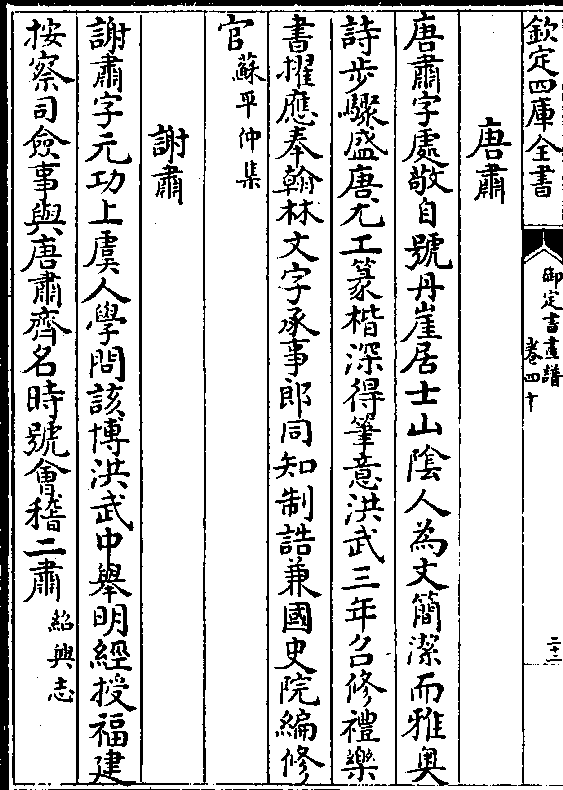 欽定四庫全書
御定書畫譜
卷四十
二十二
唐肅
唐肅字處敬自號丹崖居士山陰人為文簡潔而雅奥
詩步驟盛唐尤工篆楷深得筆意洪武三年召修禮樂
書擢應奉翰林文字承事郎同知制誥兼國史院編修
官蘇平仲集
謝肅
謝肅字元功上虞人學問該博洪武中舉明經授福建
按察司僉事與唐肅齊名時號會稽二肅紹興志